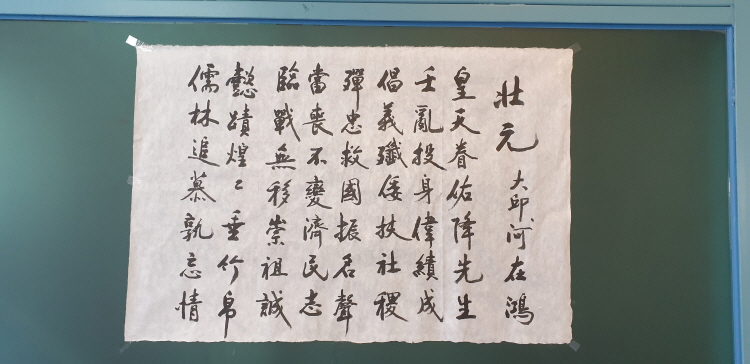 壯元 大邱 河在鴻
皇天眷佑降先生
壬亂投身偉績成
倡義殲倭扶社稷
殫忠救國振名聲
當喪不變濟民志
臨戰無移崇祖誠
懿蹟煌〻垂竹帛
儒林追慕孰忘情